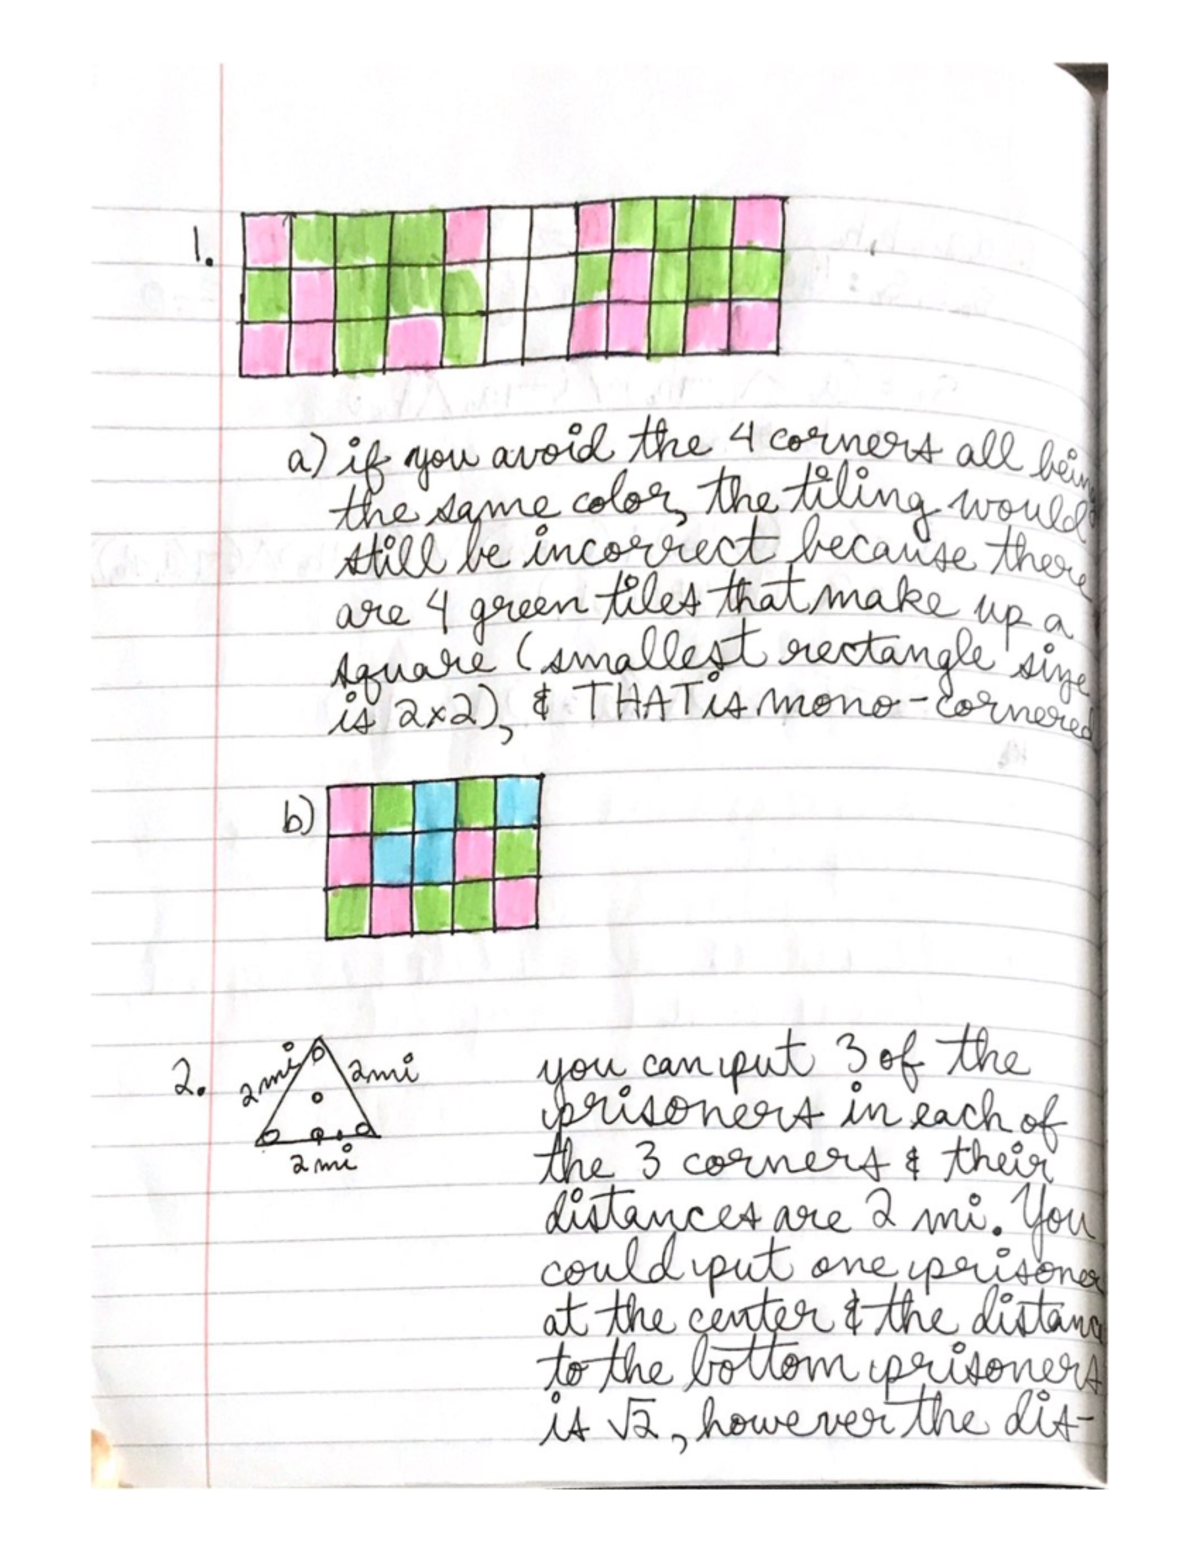 1.
a) if you avoid the 4 corners all being
the same color, the tiling would
still be incorrect because there
are 4 green tiles that make up a
square (smallest rectangle size
is 2x2), & THAT is mono-cornered
b)
2.
2mi 2mi
2mi
you can put 3 of the
prisoners in each of
the 3 corners & their
distances are 2 mi. You
could put one prisoner
at the center & the distanc
to the bottom prisoners
is √2, however the dis-